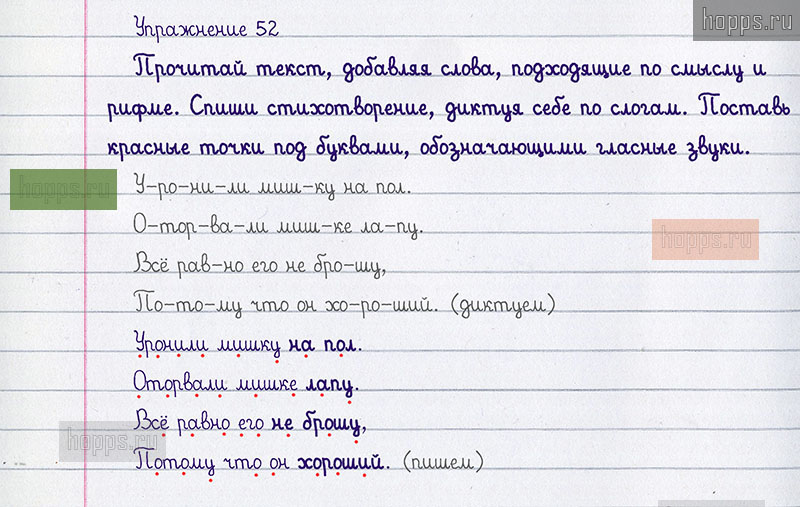 hopps.ru
Упражнение 52
Прочитай текст, добавляя слова, подходящие по смыслу и
рифме. Спиши стихотворение, диктуя себе по слогам. Поставь
красные точки под буквами, обозначающими гласные звуки.
hopps.ru
У-ро-ни-ли миш-ку на пол.
О-тор-ва-ли миш-ке ла-пу.
hopps.ru
Всё рав-но его не бро-шу,
По-то-му что он хо-ро-ший. (диктуем)
Уронили мишку на пол.
Оторвали мишке лапу.
Всё равно его не брошу,
hopps.ru
Потому что он хороший. (пишем)